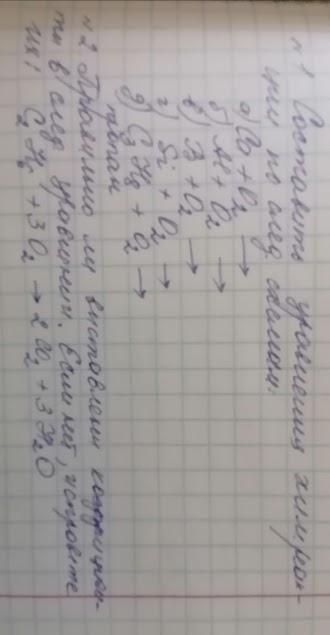 №1 Составить уравнения хим реак-
ции по след схемам:
а) Ca + O₂ →
б) Al + O₂ →
в) B + O₂ →
г) Si + O₂ →
д) C₃H₈ + O₂ →
пропан
№2 Правильно ли выставлены коэффициен-
ты в след уравнении. Если нет, исправьте
их:
C₂H₆ + 3O₂ → 2CO₂ + 3H₂O